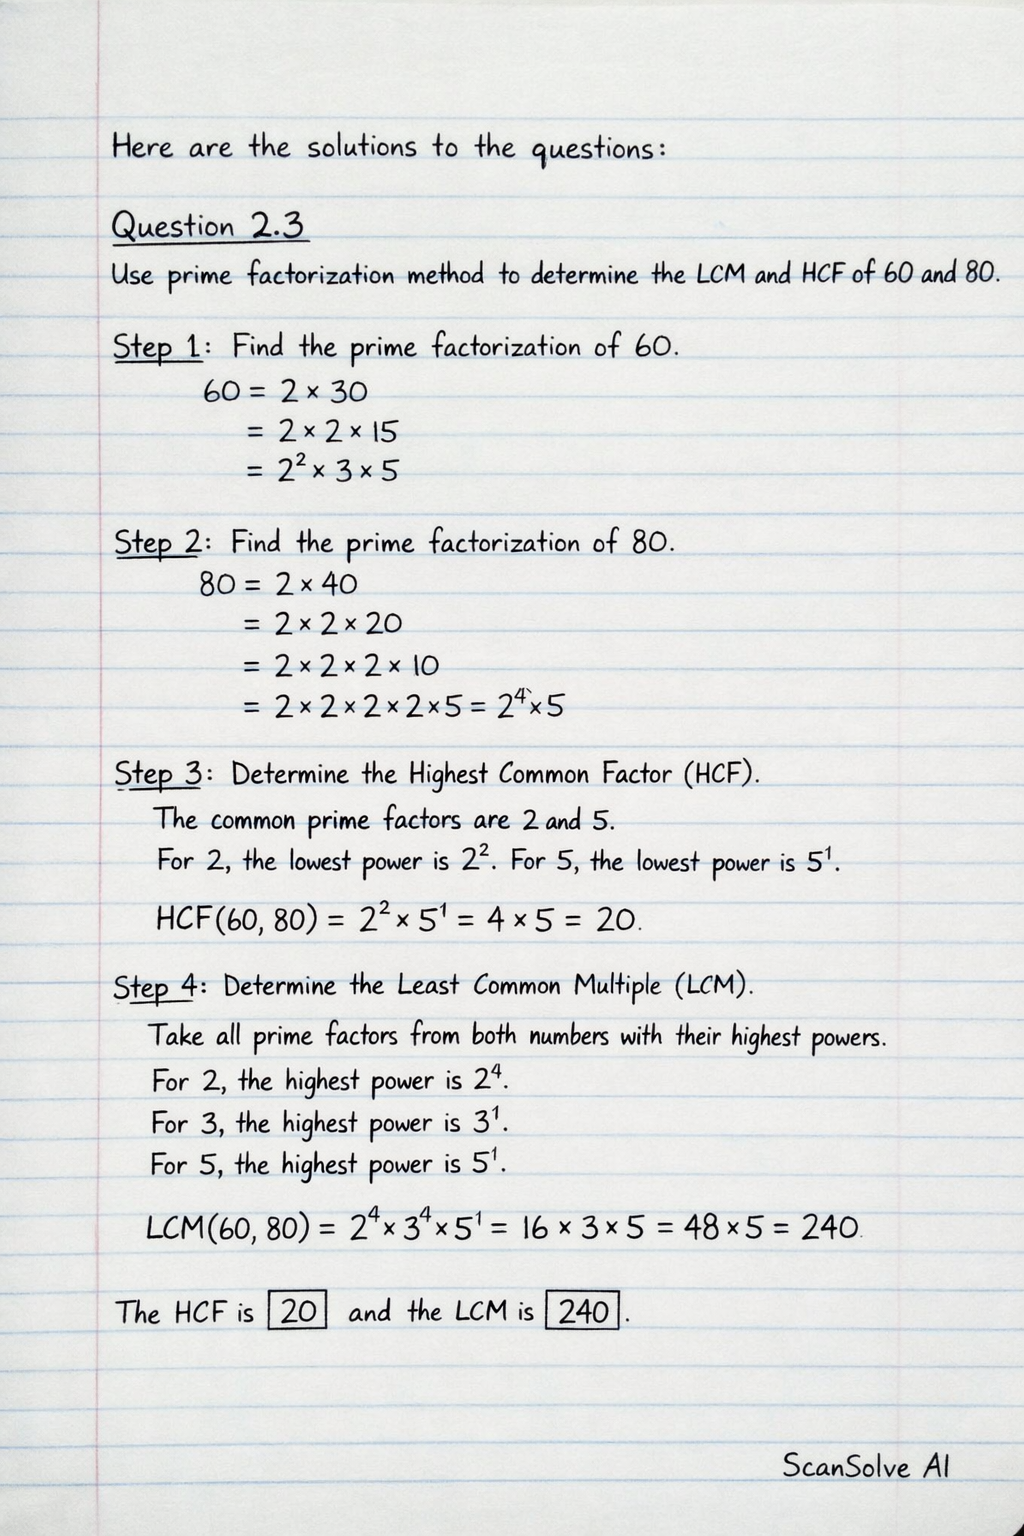 Here are the solutions to the questions:
Question 2.3
Use prime factorization method to determine the LCM and HCF of 60 and 80.
Step 1: Find the prime factorization of 60.
60 = 2 × 30
= 2 × 2 × 15
= 2² × 3 × 5
Step 2: Find the prime factorization of 80.
80 = 2 × 40
= 2 × 2 × 20
= 2 × 2 × 2 × 10
= 2 × 2 × 2 × 2 × 5 = 2⁴ × 5
Step 3: Determine the Highest Common Factor (HCF).
The common prime factors are 2 and 5.
For 2, the lowest power is 2². For 5, the lowest power is 5¹.
HCF(60, 80) = 2² × 5¹ = 4 × 5 = 20.
Step 4: Determine the Least Common Multiple (LCM).
Take all prime factors from both numbers with their highest powers.
For 2, the highest power is 2⁴.
For 3, the highest power is 3¹.
For 5, the highest power is 5¹.
LCM(60, 80) = 2⁴ × 3⁴ × 5¹ = 16 × 3 × 5 = 48 × 5 = 240.
The HCF is 20 and the LCM is 240.
ScanSolve AI